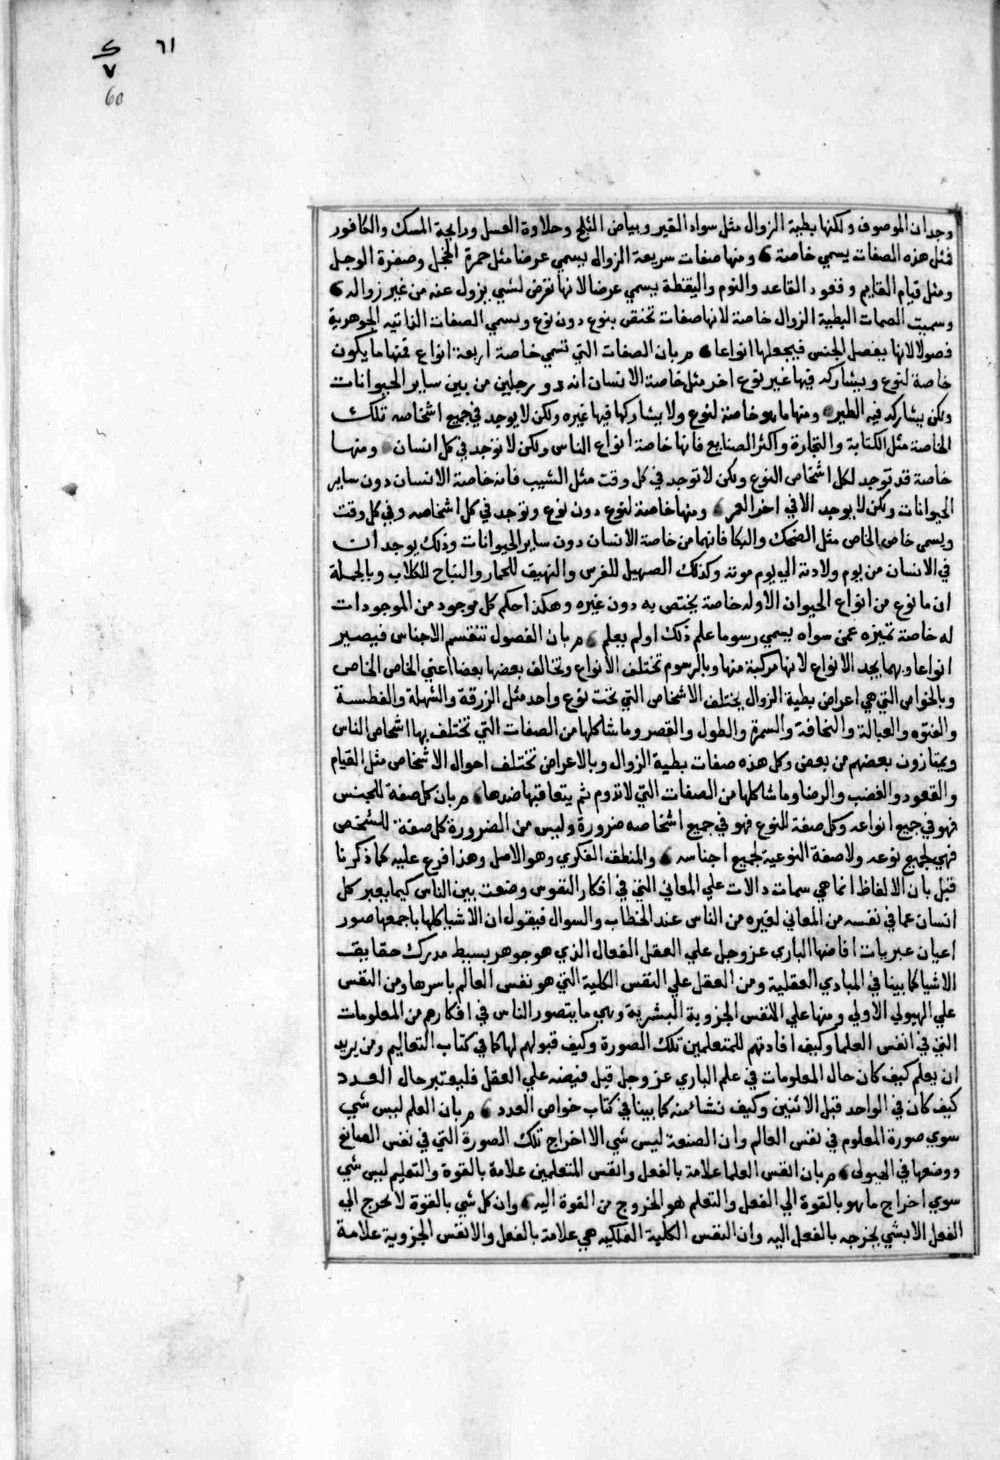 ٦١
٧
60
وجدان الموصوف ولكنها بطية الزوال مثل سواد القير وبياض الثلج وحلاوة العسل ورايحة المسك والكافور
فمثل هذه الصفات يسمي خاصة ومنها صفات سريعة الزوال يسمي عرضا مثل حمرة الخجل وصفرة الوجل
ومثل قيام القايم وقعود القاعد والنوم واليقظة يسمي عرضا لانها تعرض لشي يزول عنه من غير زواله
وسميت الصفات البطية الزوال خاصة لانها صفات تختص بنوع دون نوع ويسمي الصفات الذاتيه الجوهرية
فصولا لانها يفصل الجنس فيجعلها انواعا م بان الصفات التي تسمي خاصة اربعة انواع فمنها ما يكون
خاصة لنوع ويشاركه فيها غير نوع اخر مثل خاصة الانسان انه ذو رجلين من بين ساير الحيوانات
ولكن يشاركه فيه الطير ومنها ما هو خاصة لنوع ولا يشاركها فيها غيره ولكن لا يوجد في جميع اشخاصه تلك
الخاصة مثل الكتابة والتجارة واكثر الصنايع فانها خاصة انواع الناس ولكن لا توجد في كل انسان ومنها
خاصة قد توجد لكل اشخاص النوع ولكن لا توجد في كل وقت مثل الشيب فانه خاصة الانسان دون ساير
الحيوانات ولكن لا يوجد الا في اخر العمر ومنها خاصة لنوع دون نوع وتوجد في كل اشخاصه وفي كل وقت
ويسمي خاص الخاص مثل الضحك والبكا فانهما من خاصة الانسان دون ساير الحيوانات وذلك يوجدان
في الانسان من يوم ولادته الي يوم موته وكذلك الصهيل للفرس والنهيق للحمار والنباح للكلاب وبالجملة
ان ما نوع من انواع الحيوان الا وله خاصة يختص به دون غيره وهكذا حكم كل موجود من الموجودات
له خاصة تميزه عمن سواه يسمي رسوما علم ذلك او لم يعلم م بان الفصول تنقسم الاجناس فيصير
انواعا وبهما يجد الانواع لانها مركبة منها وبالرسوم تختلف الانواع وتخالف بعضها بعضا اعني الخاص الخاص
وبالخواص التي هي اعراض بطية الزوال يختلف الاشخاص التي تحت نوع واحد مثل الزرقة والشهلة والفطسة
والفتوه والعبالة والنحافة والسمرة والطول والقصر وما شاكلها من الصفات التي تختلف بها اشخاص الناس
ويمتازون بعضهم من بعض وكل هذه صفات بطية الزوال وبالاعراض تختلف احوال الاشخاص مثل القيام
والقعود والغضب والرضا وما شاكلها من الصفات التي لا تدوم ثم يتعاقبها ضدها م بان كل صفة للجنس
فهو في جميع انواعه وكل صفة للنوع فهو في جميع اشخاصه ضرورة وليس من الضرورة كل صفة للشخص
فهي لجميع نوعه ولا صفة النوعية لجميع اجناسه والمنطقه الفكري وهو الاصل وهذا فرع عليه كما ذكرنا
قبل بان الالفاظ انما هي سمات دالات علي المعاني التي في افكار النفوس وضعت بين الناس كيما يعبر كل
انسان عما في نفسه من المعاني لغيره من الناس عند الخطاب والسوال فيقول ان الاشيا كلها باجمعها صور
اعيان غيريات افاضها الباري عز وجل علي العقل الفعال الذي هو جوهر بسيط مدرك حقايق
الاشيا كما بينا في المبادي العقلية ومن العقل علي النفس الكلية التي هو نفس العالم باسرها ومن النفس
علي الهيولي الاولي ومنها علي النفس الجزوية البشرية وهي ما يتصور الناس في افكارهم من المعلومات
التي في انفس العلما وكيف افادتهم للمتعلمين تلك الصورة وكيف قبولهم لها كما في كتاب التعاليم ومن يريد
ان يعلم كيف كان حال المعلومات في علم الباري عز وجل قبل فيضه علي العقل فليعتبر حال العدد
كيف كان في الواحد قبل الاثنين وكيف نشا منه كما بينا في كتاب خواص العدد م بان العلم ليس شي
سوي صورة المعلوم في نفس العالم وان الصنعة ليس شي الا اخراج تلك الصورة التي في نفس الصانع
ووضعها في الهيولي م بان انفس العلما علامة بالفعل وانفس المتعلمين علامة بالقوة والتعليم ليس شي
سوي اخراج ما هو بالقوة الي الفعل والتعلم هو الخروج من القوة اليه وان كل شي بالقوة لا يخرج الي
الفعل الا بشي يخرجه بالفعل اليه وان النفس الكلية الفلكيه هي علامة بالفعل والانفس الجزوية علامة